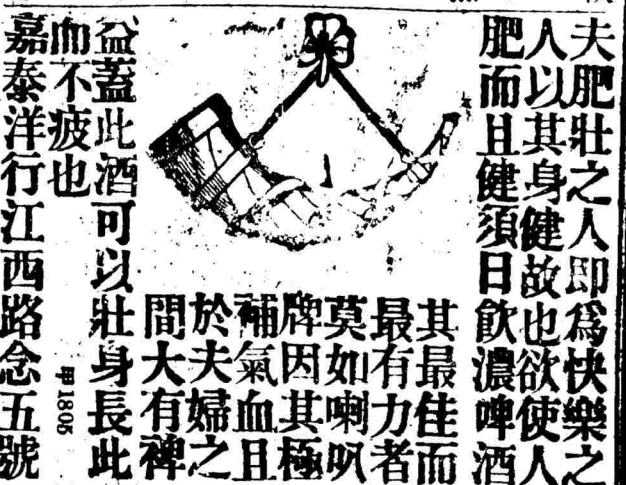 夫肥壯之人即為快樂之
人以其身健故也欲使人
肥而且健須日飲濃啤酒
其最佳而
最有力者
莫如喇叭
牌因其極
補氣血且
於夫婦之
間大有裨
益蓋此酒可以壯身長此
而不疲也
甲1805
嘉泰洋行江西路念五號